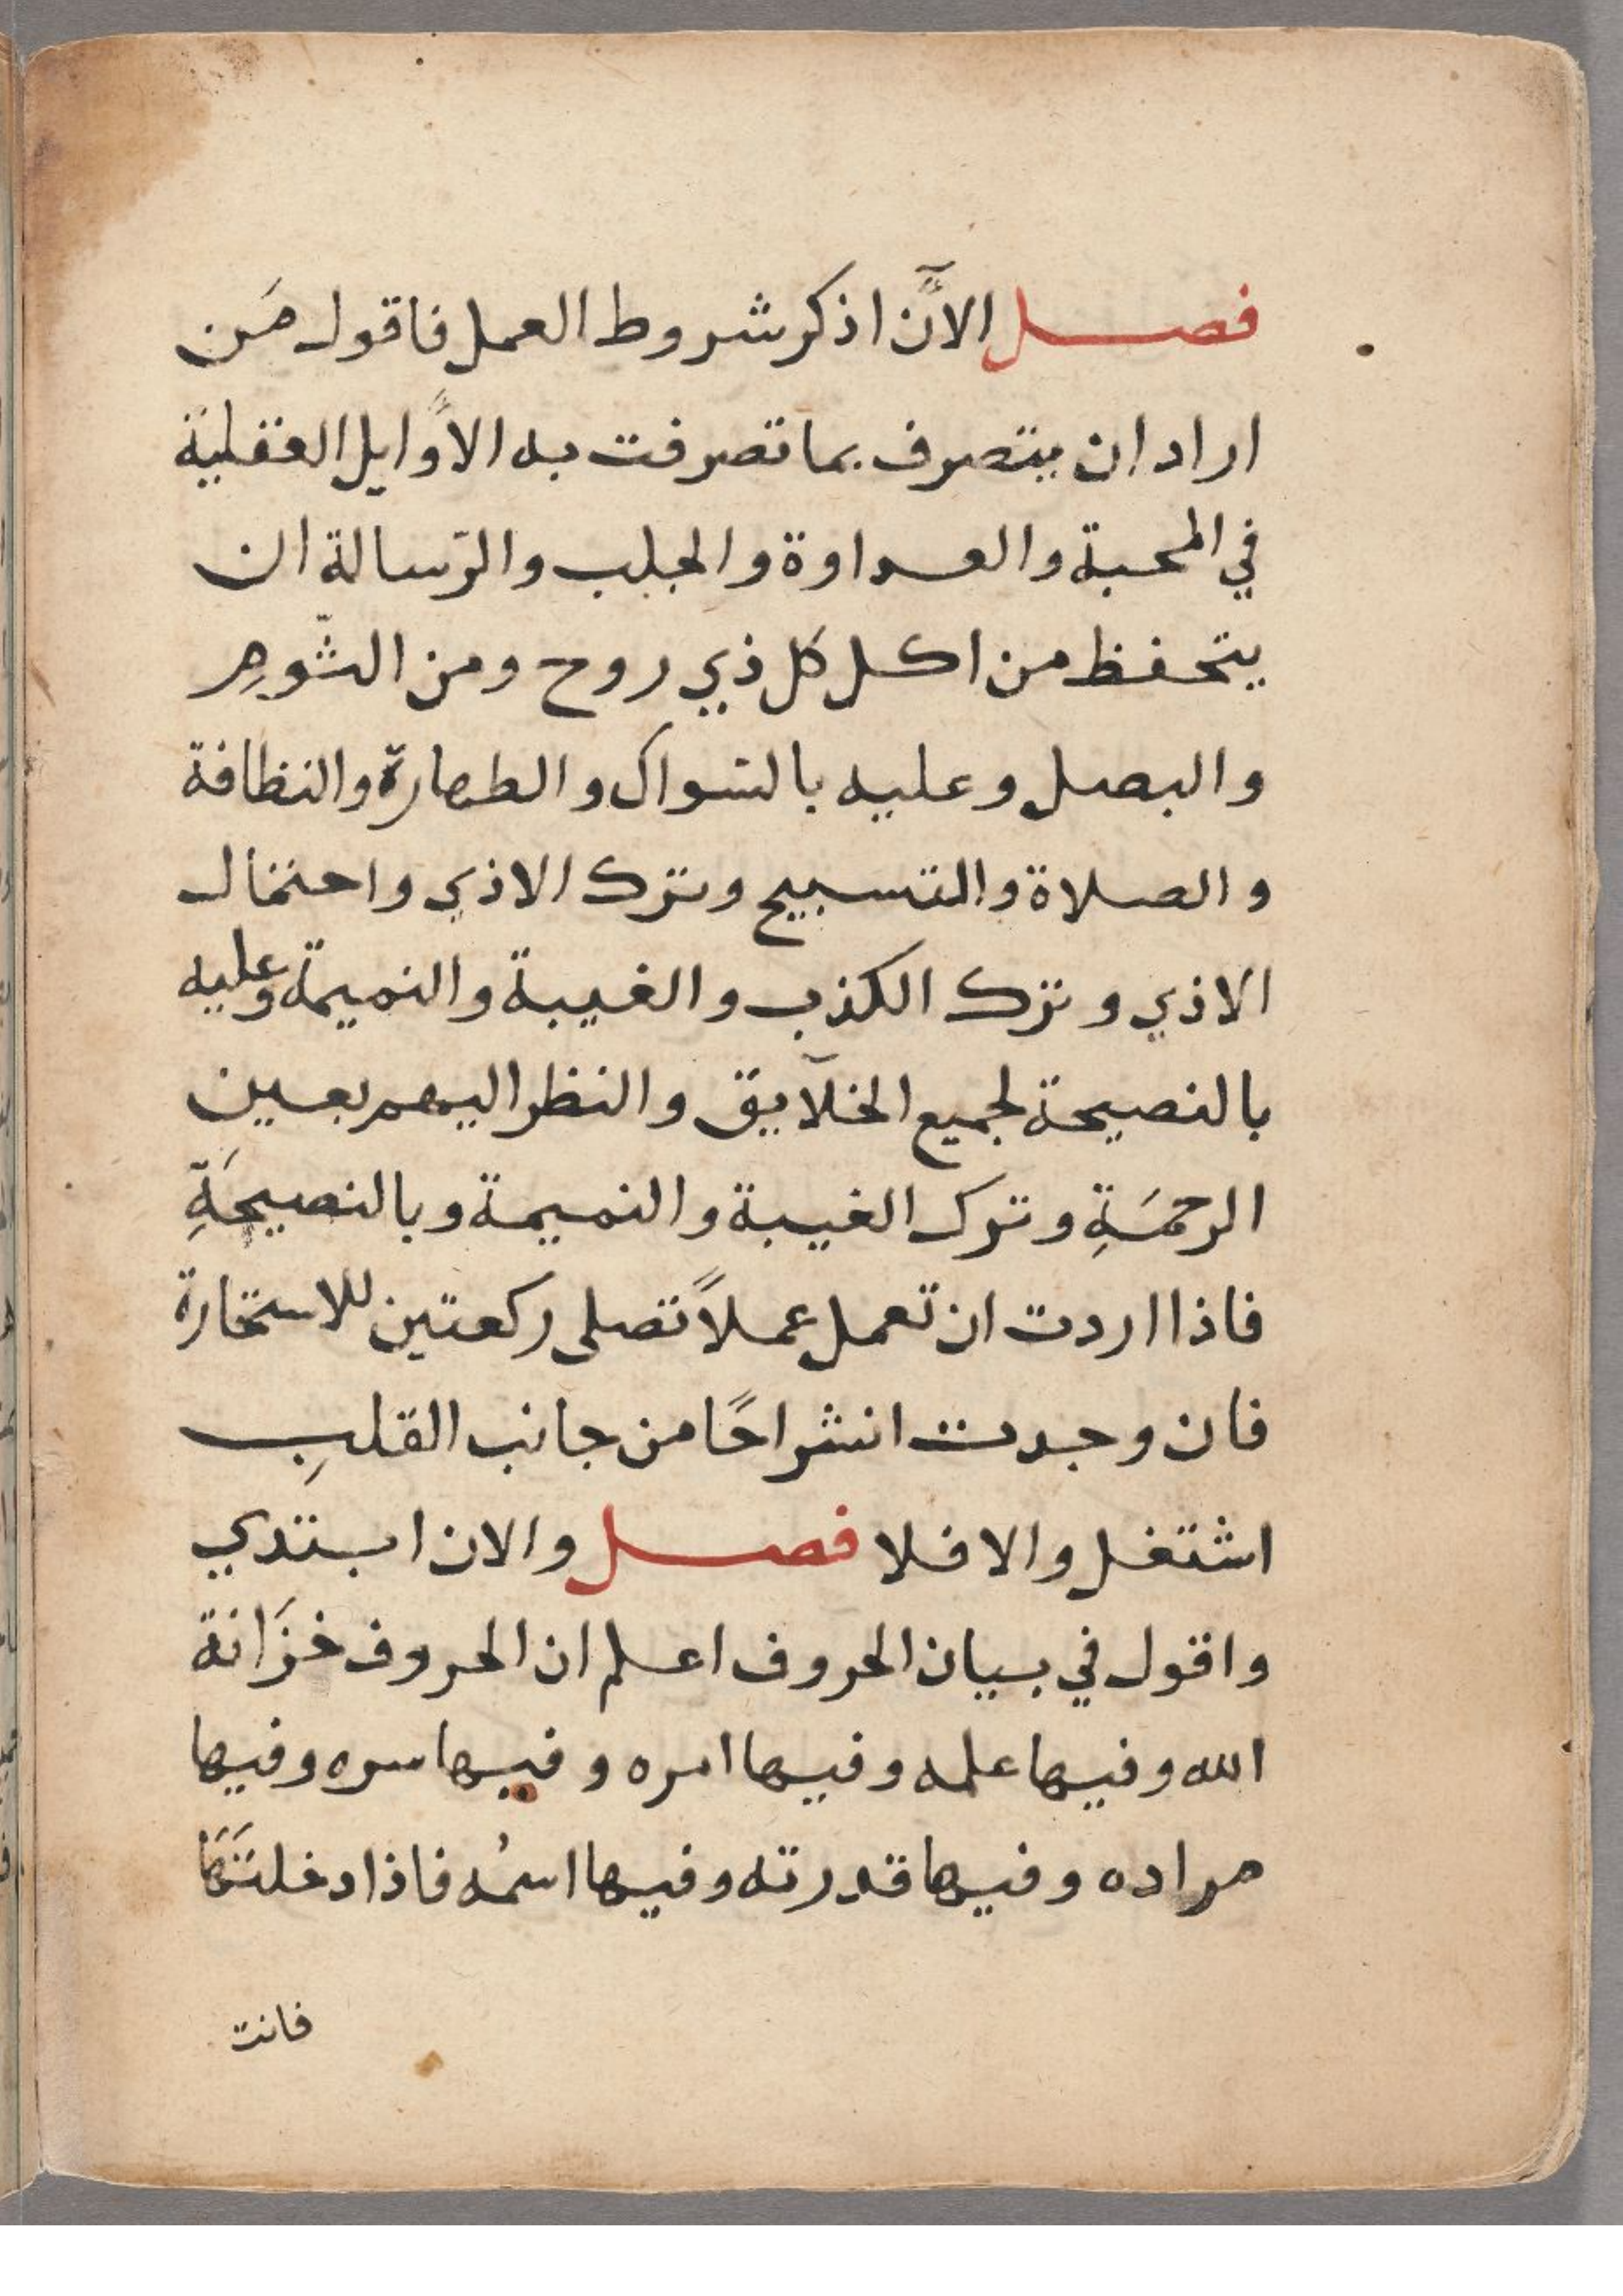 فصل الآن اذكر شروط العمل فاقول مَن
اراد ان يتصرف بما تصرفت به الأوايل العقلية
في المحبة والعداوة والجلب والرّسالة ان
يتحفظ من اكل كل ذي روح ومن الثّومِ
والبصل وعليه بالسواك والطهارة والنظافة
والصلاة والتسبيح وترك الاذي واحتمال
الاذي وترك الكذب والغيبة والنميمة وعليه
بالنصيحة لجميع الخلآيق والنظر اليهم بعين
الرحمَةِ وترك الغيبة والنميمة وبالنصيحَةِ
فاذا اردت ان تعمل عملاً تصلى ركعتين للاستخارة
فان وجدت انشراحًا من جانب القلبِ
اشتغل والا فلا فصل والان ابتدي
واقول في بيان الحروف اعلم ان الحروف خزَانة
الله وفيها علمه وفيها امره وفيها سره وفيها
مراده وفيها قدرته وفيها اسمُه فاذا دخلتَهَا
فانت